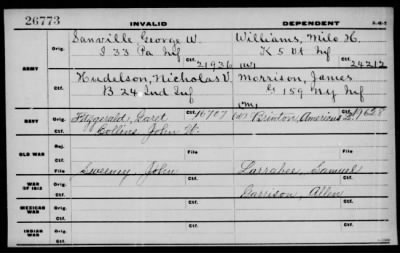 26773 INVALID DEPENDENT 3-415
Sanville George W. Williams, Milo H.
Orig. I 33 Pa Inf K 5 Vt Inf
Ctf. 21936 (W) Ctf. 24212
ARMY
Hudelson, Nicholas V. Morrison, James
Orig. B 24 Ind Inf G 159 NY Inf
Ctf. (M)
NAVY Orig. Fitzgerald, Garet 16707 (W) Brinton, Americus 19628
Ctf. Collins John W.
Rej.
OLD WAR File File
Ctf.
WAR OF 1812 Orig. Sweeney John Larraher, Samuel
Ctf. Garrison, Allen
MEXICAN WAR Orig.
Ctf.
INDIAN WAR Orig.
Ctf.